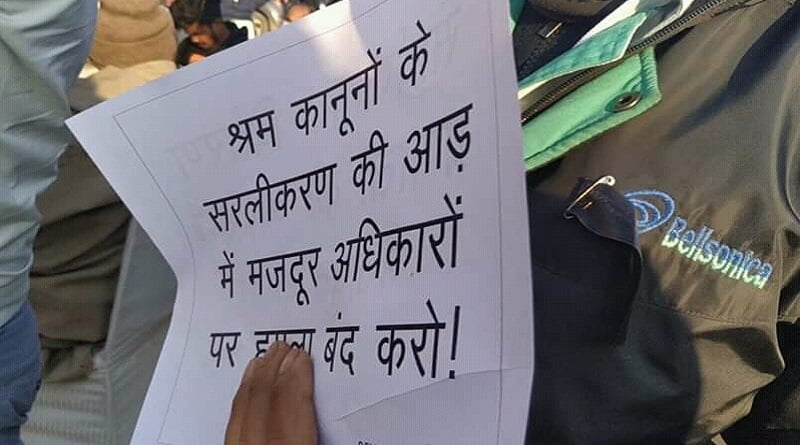 श्रम कानूनों के
सरलीकरण की आड़
में मजदूर अधिकारों
पर हमला बंद करो!
Bellsonica